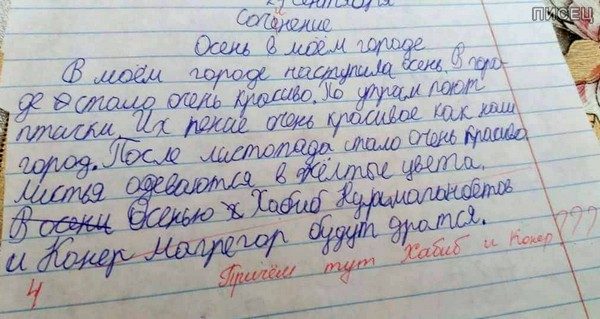 ПИСЕЦ
29 сентября
Сочинение
Осень в моём городе
В моём городе наступила осень. В горо-
де стало очень красиво. По утрам поют
птички. Их пение очень красивое как наш
город. После листопада стало очень красиво
листья одеваются в жёлтые цвета.
В осени Осенью Хабиб Нурмагамедтов
и Конер Магрегор будут дратся.
4 Причём тут Хабиб и Конер???